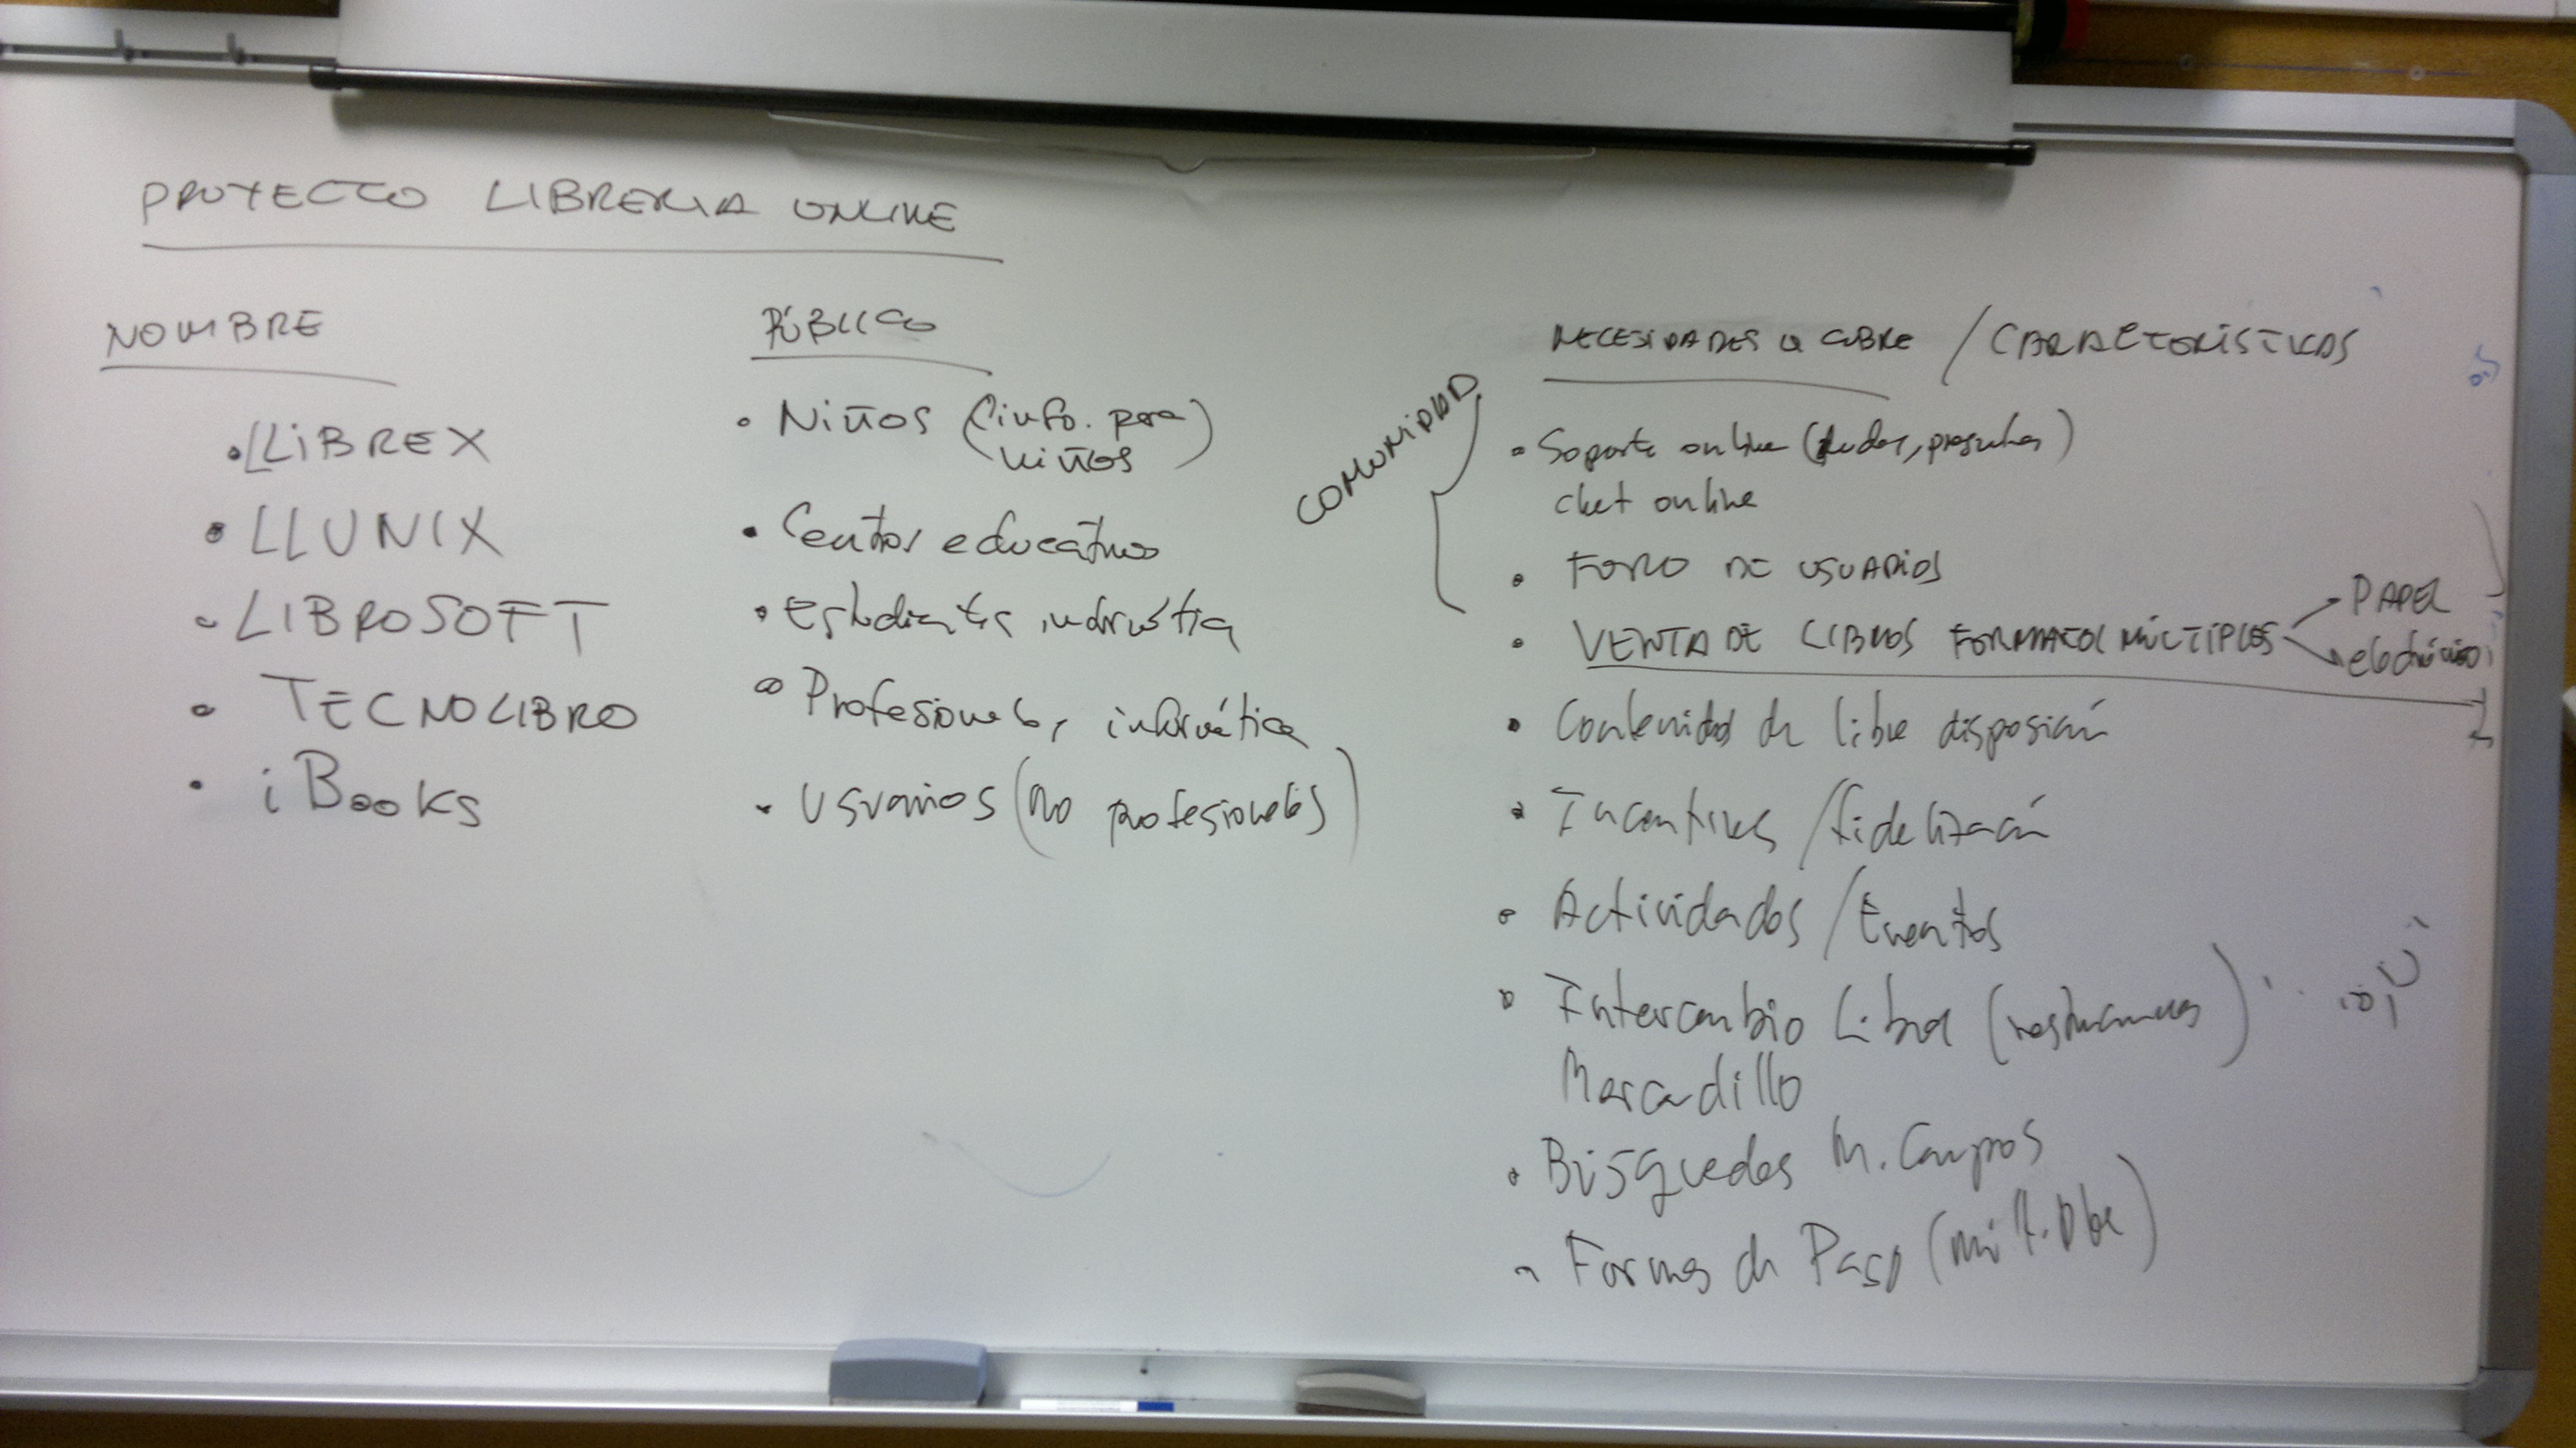 PROYECTO LIBRERIA ONLINE
NOMBRE
• LLiBREX
• LLUNIX
• LIBROSOFT
• TECNOLIBRO
• iBooks
PÚBLICO
• Niños (info. para
niños)
• Centros educativos
• Estudiantes informática
• Profesionales informática
• Usuarios (no profesionales)
NECESIDADES Q CUBRE / CARACTERÍSTICAS
COMUNIDAD
• Soporte online (dudas, preguntas)
chat online
• FORO DE USUARIOS
• VENTA DE LIBROS FORMATOS MÚLTIPLES
PAPEL
electrónico
• Contenidos de libre disposición
• Incentivos / fidelización
• Actividades / Eventos
• Intercambio Libros
Mercadillo
• Búsquedas M. Campos
• Formas de Pago (múltiple)